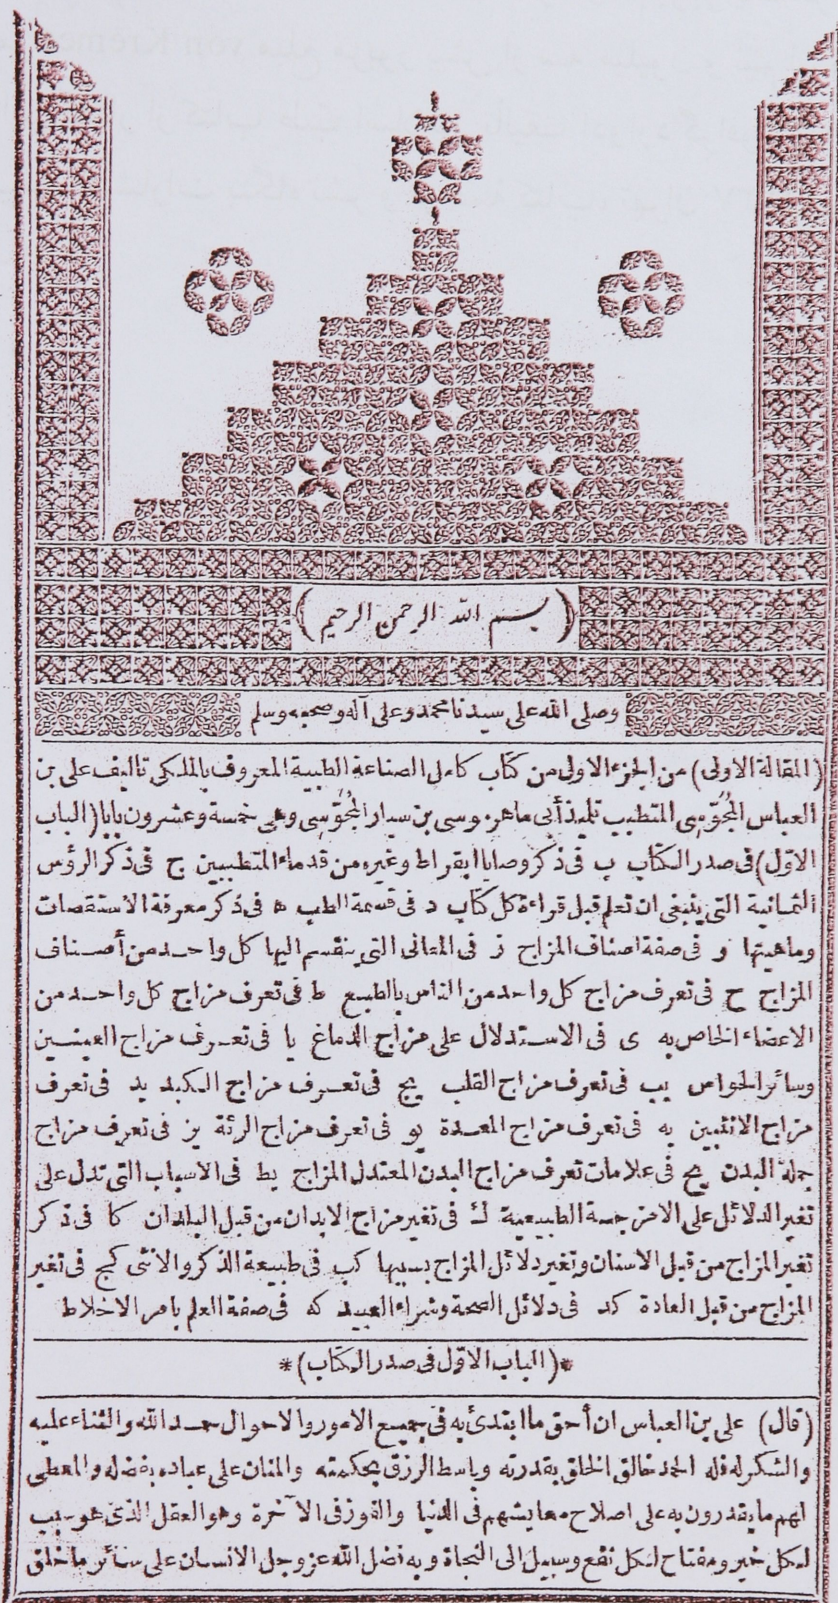 (بسم الله الرحمن الرحيم)
وصلى الله على سيدنا محمد وعلى آله وصحبه وسلم
(المقالة الاولى) من الجزء الاول من كتاب كامل الصناعة الطبية المعروف بالملكى تاليف على بن
العباس المجوسى المتطبب تلميذ أبى ماهر موسى بن سيار المجوسى وهى خمسة وعشرون بابا (الباب
الاول) فى صدر الكتاب ب فى ذكر وصايا ابقراط وغيره من قدماء المتطببين ج فى ذكر الرؤس
الثمانية التى ينبغى ان تعلم قبل قراءة كل كتاب د فى قسمة الطب ه فى ذكر معرفة الاستقصات
وماهيتها و فى صفة اصناف المزاج ز فى المعانى التى ينقسم اليها كل واحد من أصناف
المزاج ح فى تعرف مزاج كل واحد من الناس بالطبع ط فى تعرف مزاج كل واحد من
الاعضاء الخاص به ى فى الاستدلال على مزاج الدماغ يا فى تعرف مزاج العينين
وسائر الحواس يب فى تعرف مزاج القلب يج فى تعرف مزاج الكبد يد فى تعرف
مزاج الانثيين يه فى تعرف مزاج المعدة يو فى تعرف مزاج الرئة يز فى تعرف مزاج
جملة البدن يح فى علامات تعرف مزاج البدن المعتدل المزاج يط فى الاسباب التى تدل على
تغير الدلائل على الامزجة الطبيعية ك فى تغير مزاج الابدان من قبل البلدان كا فى ذكر
تغير المزاج من قبل الاسنان وتغير دلائل المزاج بسببها كب فى طبيعة الذكر والانثى كج فى تغير
المزاج من قبل العادة كد فى دلائل الصحة وشراء العبيد كه فى صفة العلم بامر الاخلاط
*(الباب الاول فى صدر الكتاب)*
(قال) على بن العباس ان أحق ما ابتدئ به فى جميع الامور والاحوال حمد الله والثناء عليه
والشكر له فلله الحمد خالق الخلق بقدرته وباسط الرزق بحكمته والمنان على عباده بفضله والمعطى
لهم ما يقدرون به على اصلاح معايشهم فى الدنيا والفوز فى الآخرة وهو العقل الذى هو سبب
لكل خير ومفتاح لكل نفع وسبيل الى النجاة وبه فضل الله عز وجل الانسان على سائر ما خلق